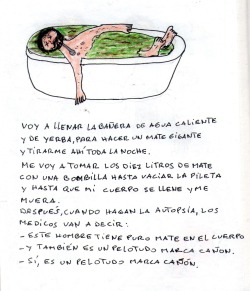 VOY A LLENAR LA BAÑERA DE AGUA CALIENTE
Y DE YERBA, PARA HACER UN MATE GIGANTE
Y TIRARME AHÍ TODA LA NOCHE.
ME VOY A TOMAR LOS DIEZ LITROS DE MATE
CON UNA BOMBILLA HASTA VACIAR LA PILETA
Y HASTA QUE MI CUERPO SE LLENE Y ME
MUERA.
DESPUÉS, CUANDO HAGAN LA AUTOPSIA, LOS
MEDICOS VAN A DECIR:
- ESTE HOMBRE TIENE PURO MATE EN EL CUERPO
- Y TAMBIÉN ES UN PELOTUDO MARCA CAÑON.
- SÍ, ES UN PELOTUDO MARCA CAÑON.